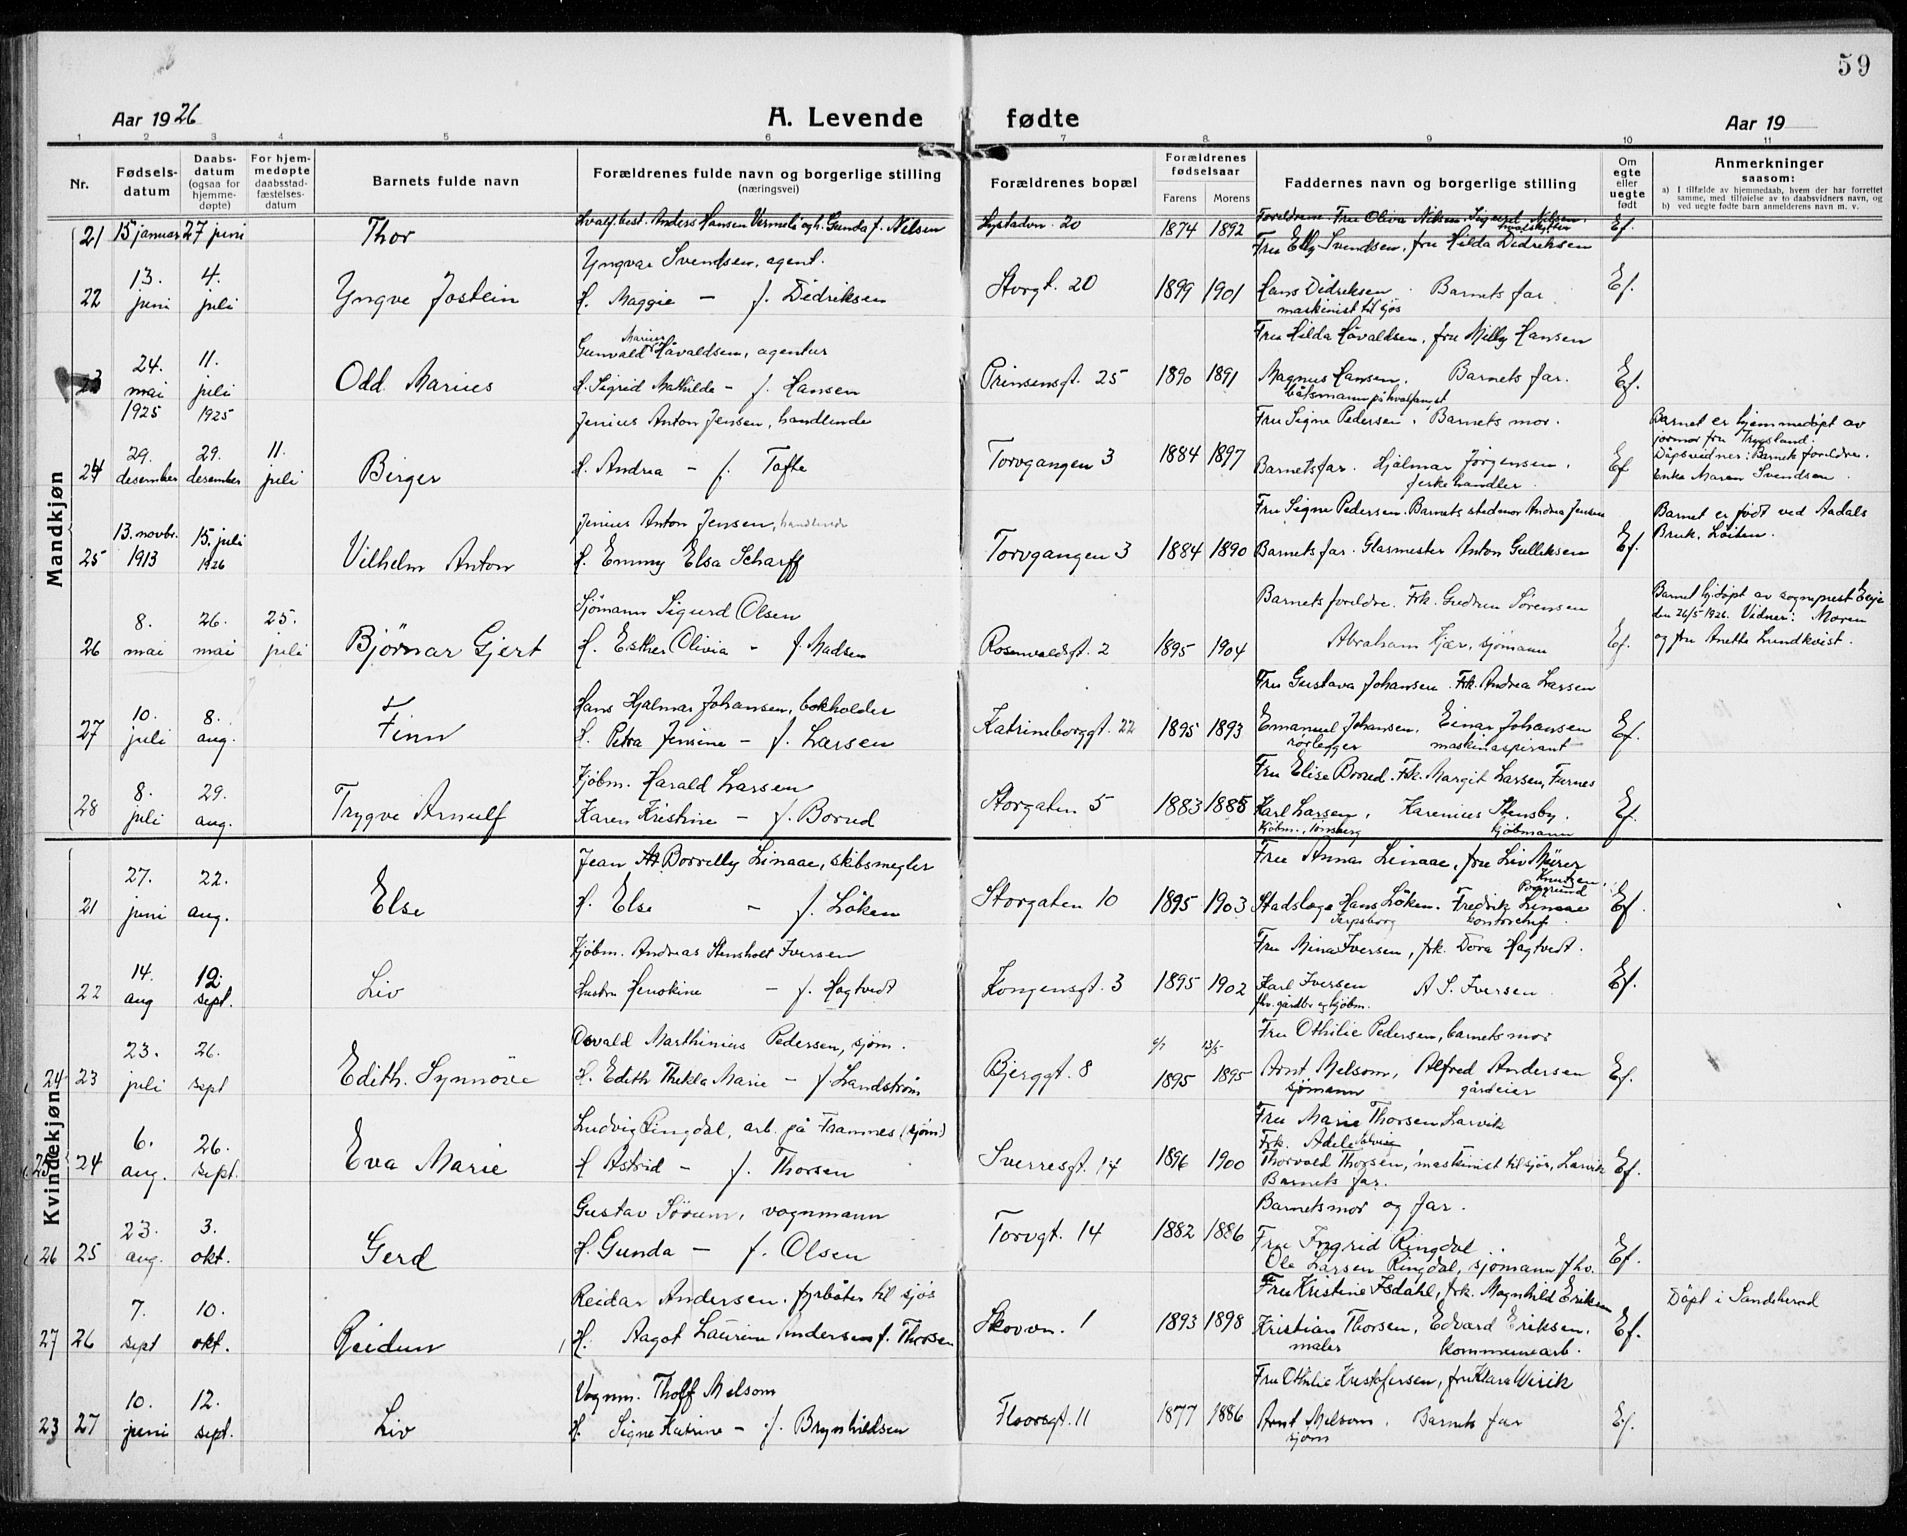 59
Aar 1926 A. Levende fødte Aar 19
1 2 3 4 5 6 7 8. 9 10 11
Nr. Fødsels-datum Daabs-datum (ogsaa for hjemme-døpte) For hjem-medøpte daabsstad-fæstelses-datum Barnets fulde navn Forældrenes fulde navn og borgerlige stilling (næringsvei) Forældrenes bopæl Forældrenes fødselsaar Farens Morens Faddernes navn og borgerlige stilling Om egte eller uegte født Anmerkninger saasom:
a) I tilfælde av hjemmedaab, hvem der har forrettet samme, med tilføielse av to daabsvidners navn, og
b) ved uegte fødte barn anmelderens navn m. v.
Mandkjøn
21 15 januar 27 juni Thor Hvalf.best. Anders Hansen Vermeli og h. Gunda f. Nilsen Lystadvn. 20 1874 1892 Foreldrene Fru Oliva Nilsen. Sigurd Nilsen, hvalskytter Ef.
22 13. juni 4. juli Yngve Jostein Yngvar Svendsen, agent.
H. Maggie – f. Didriksen Storgt. 20 1899 1901 Fru Elly Svendsen, fru Hilda Didriksen
Hans Didriksen maskinist til sjøs Barnets far Ef.
23 24. mai 1925 11. juli 1925 Odd Marius Gunvald Marius Håvaldsen, agentur
H. Sigrid Mathilde – f. Hansen Prinsensgt. 25 1890 1891 Fru Hilda Håvaldsen, fru Milly Hansen
Magnus Hansen. båtsmann på hvalfangst Barnets far. Ef.
24 29. desember 29. desember 11. juli Birger Jenius Anton Jensen, handlende
H. Andrea – f. Tofte Torvgangen 3 1884 1897 Fru Signe Pedersen. Barnets mor.
Barnets far. Hjalmar Jørgensen, ferkehandler Ef
Barnet er hjemmedøpt av jormor fru Trygsland.
Dåpsvidner: Barnets foreldre.
Enke Maren Svendsen.
25 13. novbr. 1913 15. juli 1926 Vilhelm Anton Jenius Anton Jensen, handlende
H. Emmy Elsa Scharff Torvgangen 3 1884 1890 Fru Signe Pedersen. Barnets stedmor Andrea Jensen
Barnets far. Glasmester Anton Gulliksen Ef.
Barnet er født ved Aadals Bruk. Løiten.
26 8. mai 26. mai 25. juli Bjørnar Gjert Sjømann Sigurd Olsen
H. Esther Olivia – f. Madsen Rosenvaldsgt. 2 1895 1904 Barnets foreldre. Frk. Gudrun Sørensen
Abraham Kjær, sjømann Ef.
Barnet hj.døpt av sogneprest Eeije
den 26/5 1926. Vidner: Moren
og fru Anette Lundkvist.
27 10. juli 8. aug. Finn Hans Hjalmar Johansen, bokholder
H. Petra Jensine – f. Larsen Katrineborggt. 22 1895 1893 Fru Gustava Johansen. Frk. Andrea Larsen
Emanuel Johansen, rørlegger Einar Johansen maskinaspirant Ef.
28 8. juli 29. aug. Trygve Arnulf Kjøbm. Harald Larsen
Karen Kristine – f. Borud Storgaten 5 1883 1885 Fru Elise Borud. Frk. Margit Larsen, Furnes
Karl Larsen, Kjøbm., Tønsberg Karenius Stensby. kjøbmann Ef.
Kvindekjøn
21 27. juni 22. aug. Else Jean M. Borrelly Linaae, skibsmegler
H. Else – f. Løken Storgaten 10 1895 1903 Fru Anna Linaae, fru Liv Mürer Knutzen, Porsgrund
Stadslæge Hans Løken. Sarpsborg Fredrik Linaae kontorchef Ef.
22 14. aug 12. sept. Liv Kjøbm. Andreas Stensholt Iversen
Hustru Henokine – f. Hagtvedt Kongensgt. 3 1895 1902 Fru Mina Iversen, frk. Dora Hagtvedt.
Karl Iversen fhv. gårdbr og kjøbm. A S. Iversen Ef.
24 23 23. juli 26. sept Edith Synnøve Osvald Marthinius Pedersen, sjøm.
H. Edith Thekla Marie – f. Landstrøm Bjerggt. 8 1895 13/5 1895 Fru Othilie Pedersen, barnets mor
Arnt Melsom, sjømann Alfred Andersen gårdeier Ef.
25 24 6. aug. 26. sept. Eva Marie Ludvig Ringdal, arb. på Framnes (sjøm)
H Astrid – f. Thorsen Sverresgt. 14 1896 1900 Fru Marie Thorsen Larvik
Frk. Adele
Thorvald Thorsen, maskinist til sjøs, Larvik
Barnets far. Ef.
26 25 23. aug. 3. okt. Gerd Gustav Sørum, vognmann
H. Gunda – f. Olsen Torvgt. 14 1882 1886 Barnets mor og far.
Fru Ingrid Ringdal
Ole Larsen Ringdal, sjømann fhv. Ef.
27 26 7. sept 10. okt. Reidun Reidar Andersen. fyrbøter til sjøs
H. Aagot Laurine Andersen f. Thorsen Skovvn. 1 1893 1898 Fru Kristine Isdahl, frk. Magnhild Eriksen
Kristian Thorsen, maler Edvard Eriksen, kommunearb. Ef.
Døpt i Sandeherad
23 27 10. juni 12. sept. Liv Vognm. Tholf Melsom
H. Signe Katrine – f. Brynhildsen Thorsgt. 11 1877 1886 Fru Othilie Kristofersen, fru Klara Wirik
Arnt Melsom. sjøm Barnets far Ef.